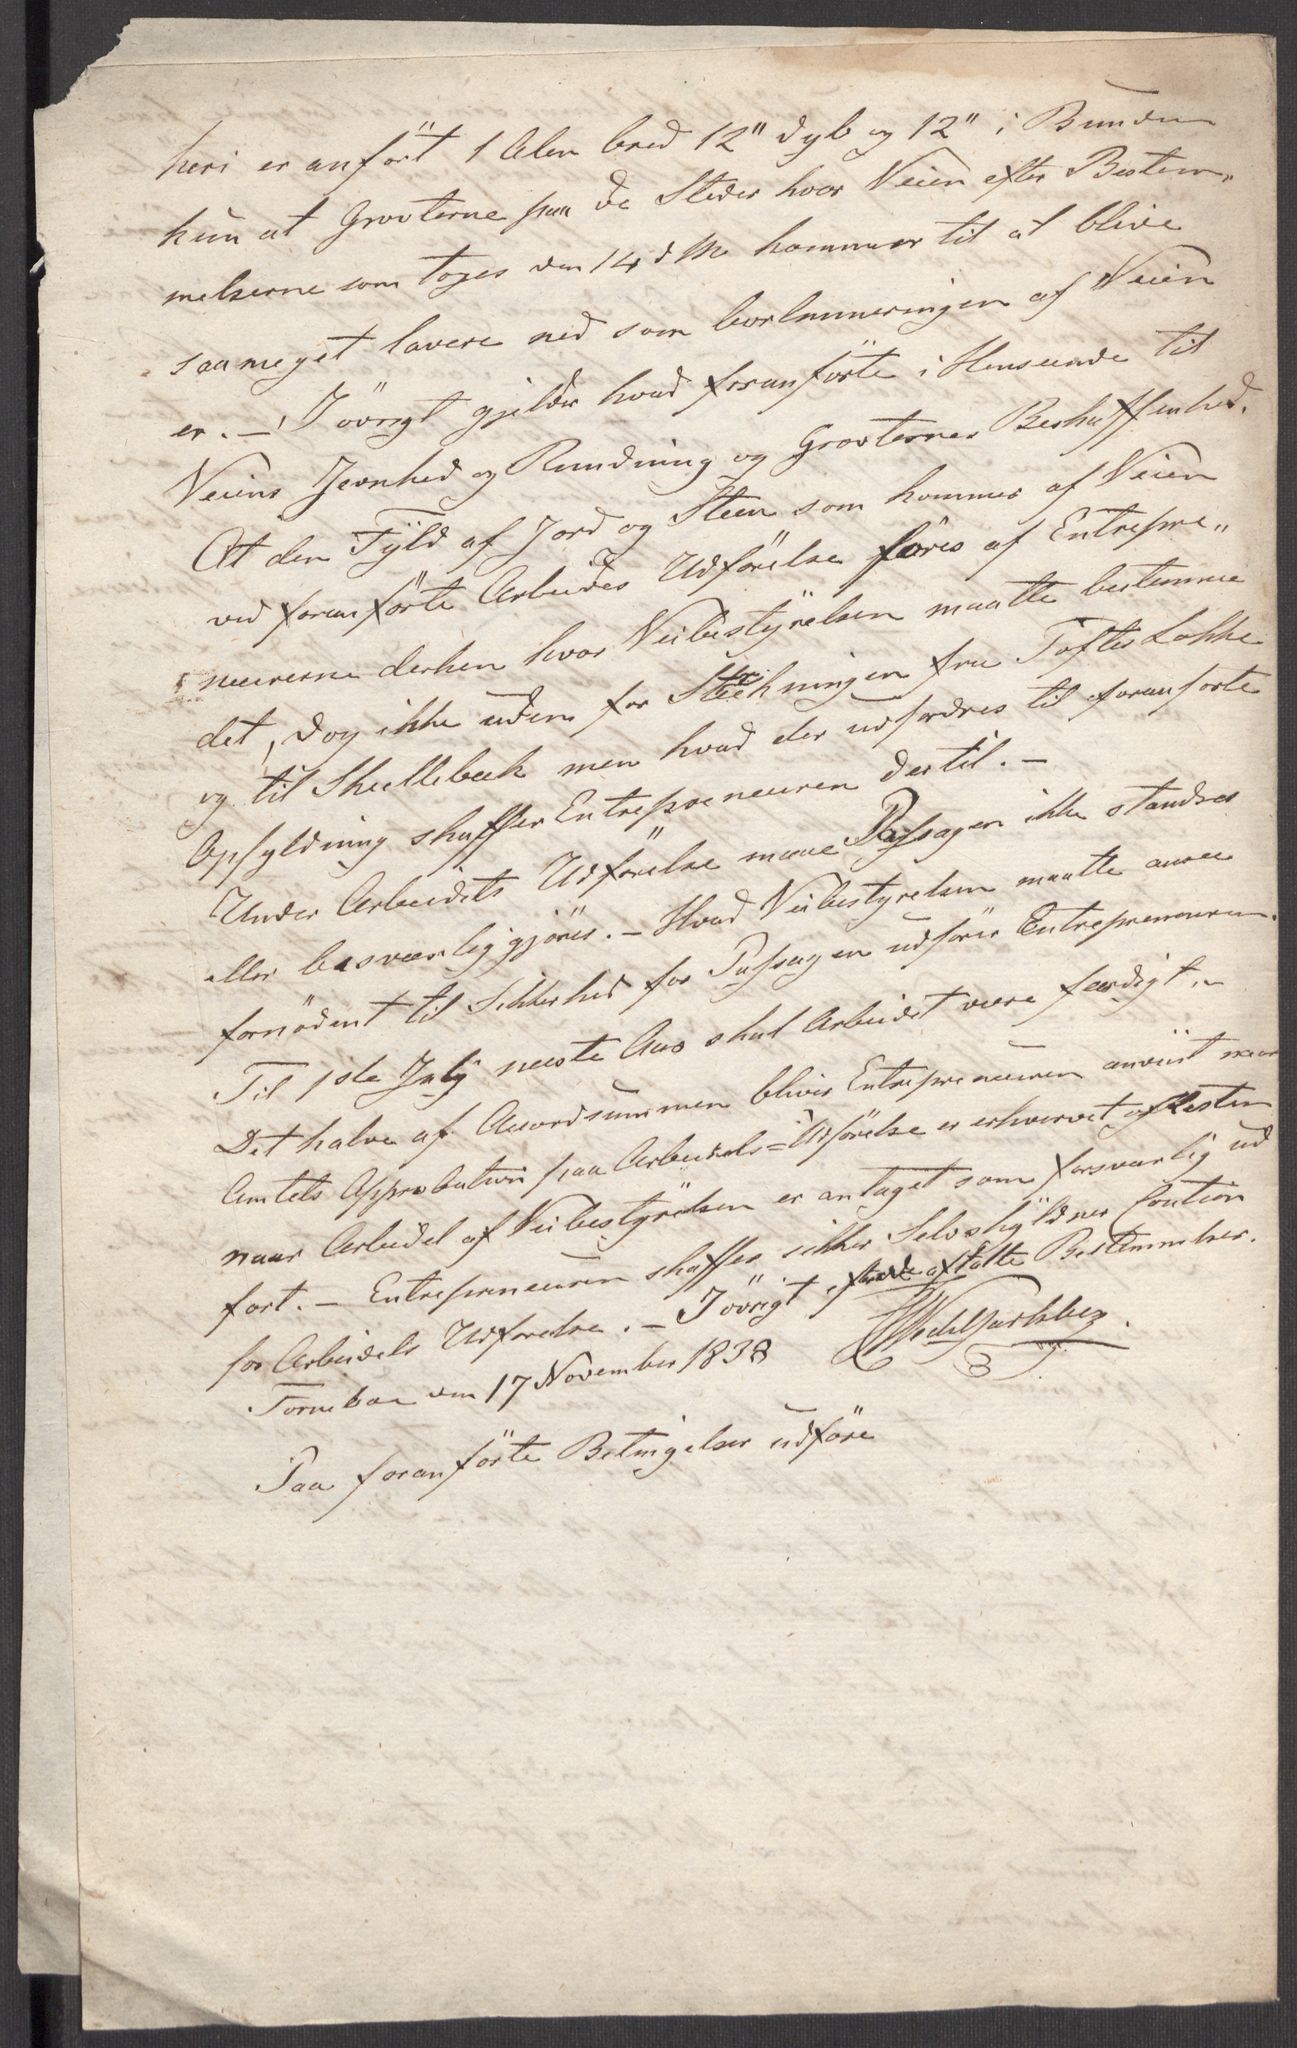 heri er anført 1 Alen bred 12" dyb og 12" i Bunden
kun at Grøvterne paa de Steder hvor Veien efter Bestem„
melserne som toges den 14 d M kommer til at blive
saameget lavere ned som borlmmeringen af Veien
er. – I övrigt gjelder hvad foranförte i Henseende til
Veiens Jevnhed og Runding og Grøvternes Beskaffenhed.
At den Fyld af Jord og Steen som kommer af Veien
ved foranförte Arbeides Udförelse føres af Entrepre„
neurerne derhen hvor Veibestÿrelsen maatte bestemme
det, dog ikke uden for Strækningen fra Tofteslökke
og til Skillebæk men hvad der udfordres til foranforte
Opfyldning skaffer Entrepreneuren dertil. –
Under Arbeidets Udförelse maae Passagen ikke standses
eller besværliggjöres. – Hvad Veibestyrelsen maatte ansee
fornödent til Sikkerhed for Passagen udförer Entrepreneuren.
Til 1ste July næste Aar skal Arbeidet være færdigt. –
Det halve af Accordsummen bliver Entrepreneuren anviist naar
Amtets Approbation paa Arbeidets = Udförelse er erhvervet og Resten
naar Arbeidet af Veibestÿrelsen er antaget som forsvarlig ud
fort. – Entrepreneuren skaffer sikker Selvskÿldner Caution
for Arbeidets Udforelse. – I övrigt efter de aftalte Bestemmelser.
Tornebae den 17 November 1838
Paa foranförte Betingelser udföre